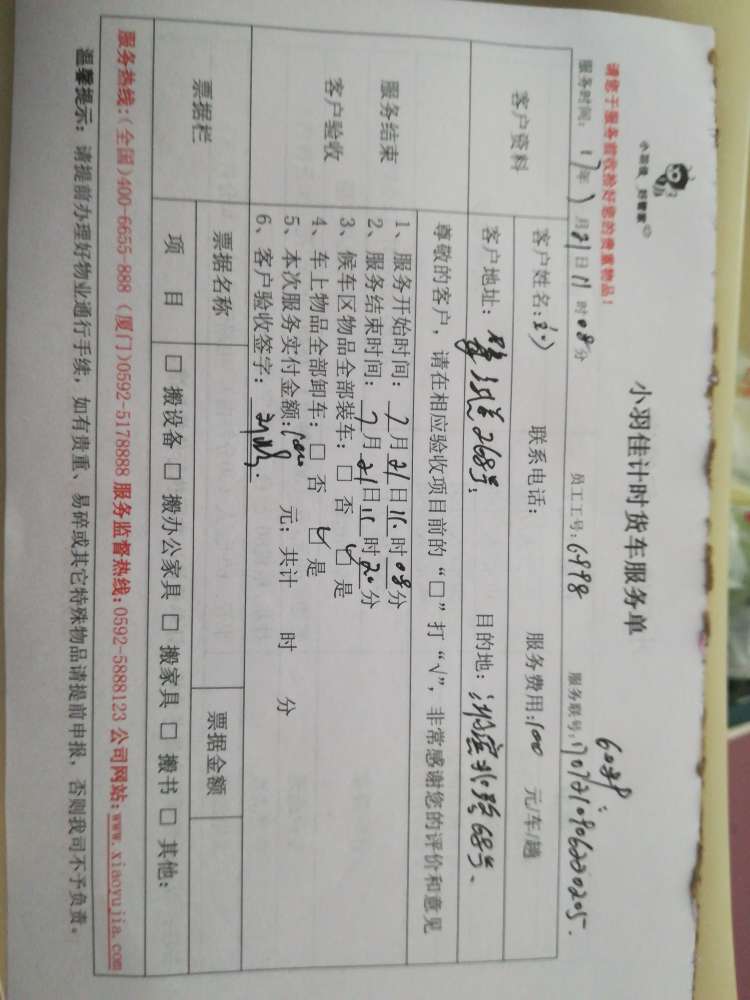 小羽佳 好管家
小羽佳计时货车服务单
请您于服务前收拾好您的贵重物品!
服务时间: 17年7月21日11时08分 员工工号:6998 服务联号:707210906220205.
客户资料
客户姓名: 联系电话: 服务费用:100 元/车/趟
客户地址: 268号; 目的地: 68号、
服务结束
客户验收
尊敬的客户,请在相应验收项目前的“□”打“√”,非常感谢您的评价和意见
1、服务开始时间: 7月21日11时08分
2、服务结束时间: 7月21日11时20分
3、候车区物品全部装车: □ 否 ☑ 是
4、车上物品全部卸车: □ 否 ☑ 是
5、本次服务实付金额: 元;共计 时 分
6、客户验收签字:
票据栏
票据名称 票据金额
项 目 □ 搬设备 □ 搬办公家具 □ 搬家具 □ 搬书 □ 其他:
服务热线:(全国)400-6655-888 (厦门)0592-5178888 服务监督热线:0592-5888123 公司网站:www.xiaoyujia.com
温馨提示: 请提前办理好物业通行手续,如有贵重、易碎或其它特殊物品请提前申报,否则我司不予负责。